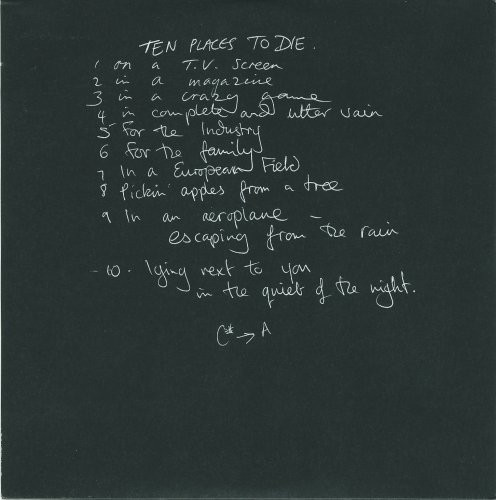 TEN PLACES TO DIE.
1 on a T.V. Screen
2 in a magazine
3 in a crazy game
4 in complete and utter vain
5 For the Industry
6 For the family
7 In a European Field
8 Pickin' apples from a tree
9 In an aeroplane –
escaping from the rain
- 10. lying next to you
in the quiet of the night.
C* → A